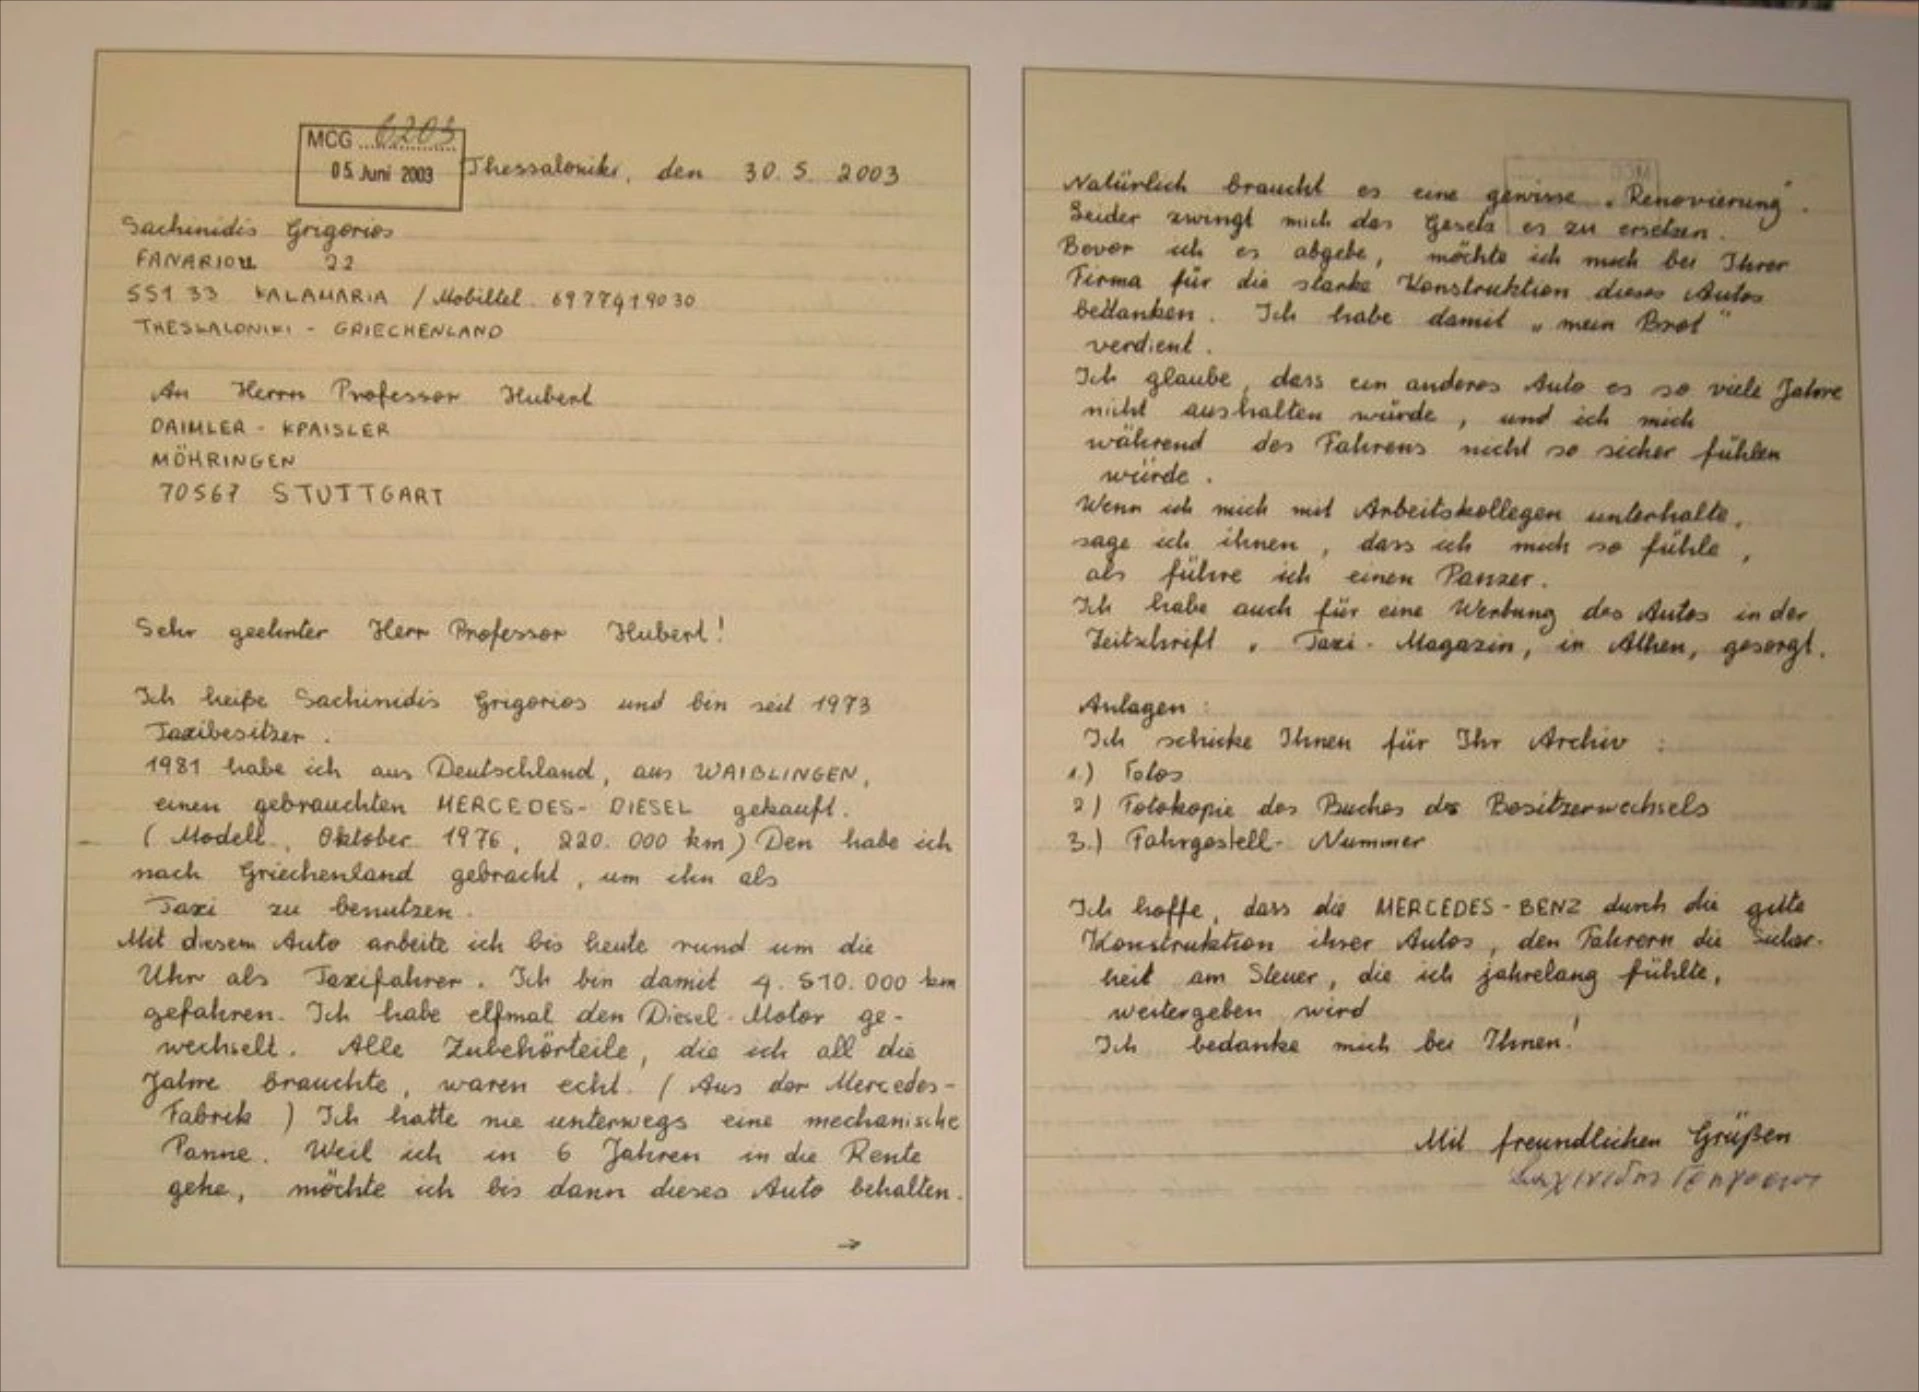 MCG 6203
05. Juni 2003
Thessaloniki, den 30.5.2003
Sachinidis Grigorios
FANARIOU 22
551 33 KALAMARIA / Mobiltel. 6977419030
THESSALONIKI - GRIECHENLAND
An Herrn Professor Hubert
DAIMLER - KPAISLER
MÖHRINGEN
70567 STUTTGART
Sehr geehrter Herr Professor Hubert!
Ich heiße Sachinidis Grigorios und bin seit 1973
Taxibesitzer.
1981 habe ich aus Deutschland, aus WAIBLINGEN,
einen gebrauchten MERCEDES-DIESEL gekauft.
(Modell, Oktober 1976, 220.000 km) Den habe ich
nach Griechenland gebracht, um ihn als
Taxi zu benutzen.
Mit diesem Auto arbeite ich bis heute rund um die
Uhr als Taxifahrer. Ich bin damit 4.510.000 km
gefahren. Ich habe elfmal den Diesel-Motor ge-
wechselt. Alle Zubehörteile, die ich all die
Jahre brauchte, waren echt. (Aus der Mercedes-
Fabrik) Ich hatte nie unterwegs eine mechanische
Panne. Weil ich in 6 Jahren in die Rente
gehe, möchte ich bis dann dieses Auto behalten.
→
Natürlich braucht es eine gewisse „Renovierung".
Leider zwingt mich das Gesetz es zu ersetzen.
Bevor ich es abgebe, möchte ich mich bei Ihrer
Firma für die starke Konstruktion dieses Autos
bedanken. Ich habe damit „mein Brot"
verdient.
Ich glaube, dass ein anderes Auto es so viele Jahre
nicht aushalten würde, und ich mich
während des Fahrens nicht so sicher fühlen
würde.
Wenn ich mich mit Arbeitskollegen unterhalte,
sage ich ihnen, dass ich mich so fühle,
als führe ich einen Panzer.
Ich habe auch für eine Werbung des Autos in der
Zeitschrift „Taxi-Magazin, in Athen, gesorgt.
Anlagen:
Ich schicke Ihnen für Ihr Archiv:
1.) Fotos
2) Fotokopie des Buches des Besitzerwechsels
3.) Fahrgestell-Nummer
Ich hoffe, dass die MERCEDES-BENZ durch die gute
Konstruktion ihrer Autos, den Fahrern die Sicher-
heit am Steuer, die ich jahrelang fühlte,
weitergeben wird
Ich bedanke mich bei Ihnen!
Mit freundlichen Grüßen
Σαχινίδης Γρηγόριος